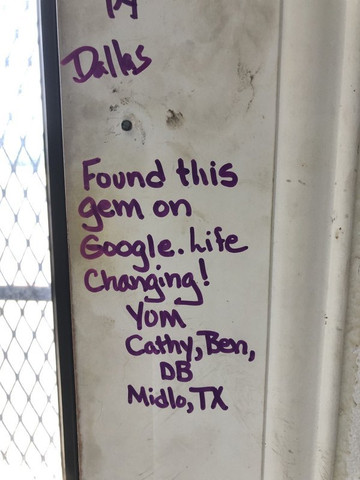 Dallas
Found this
gem on
Google. Life
Changing!
YOM
Cathy, Ben,
DB
Midlo, TX